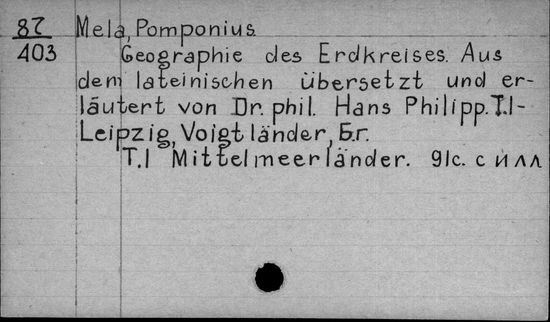 87 Mela, Pomponius.
403 Geographie des Erdkreises. Aus
dem lateinischen übersetzt und er-
läutert von Dr. phil. Hans Philipp. T.I-
Leipzig, Voigtländer, Б.г.
T.I Mittelmeerländer. 91с. с илл